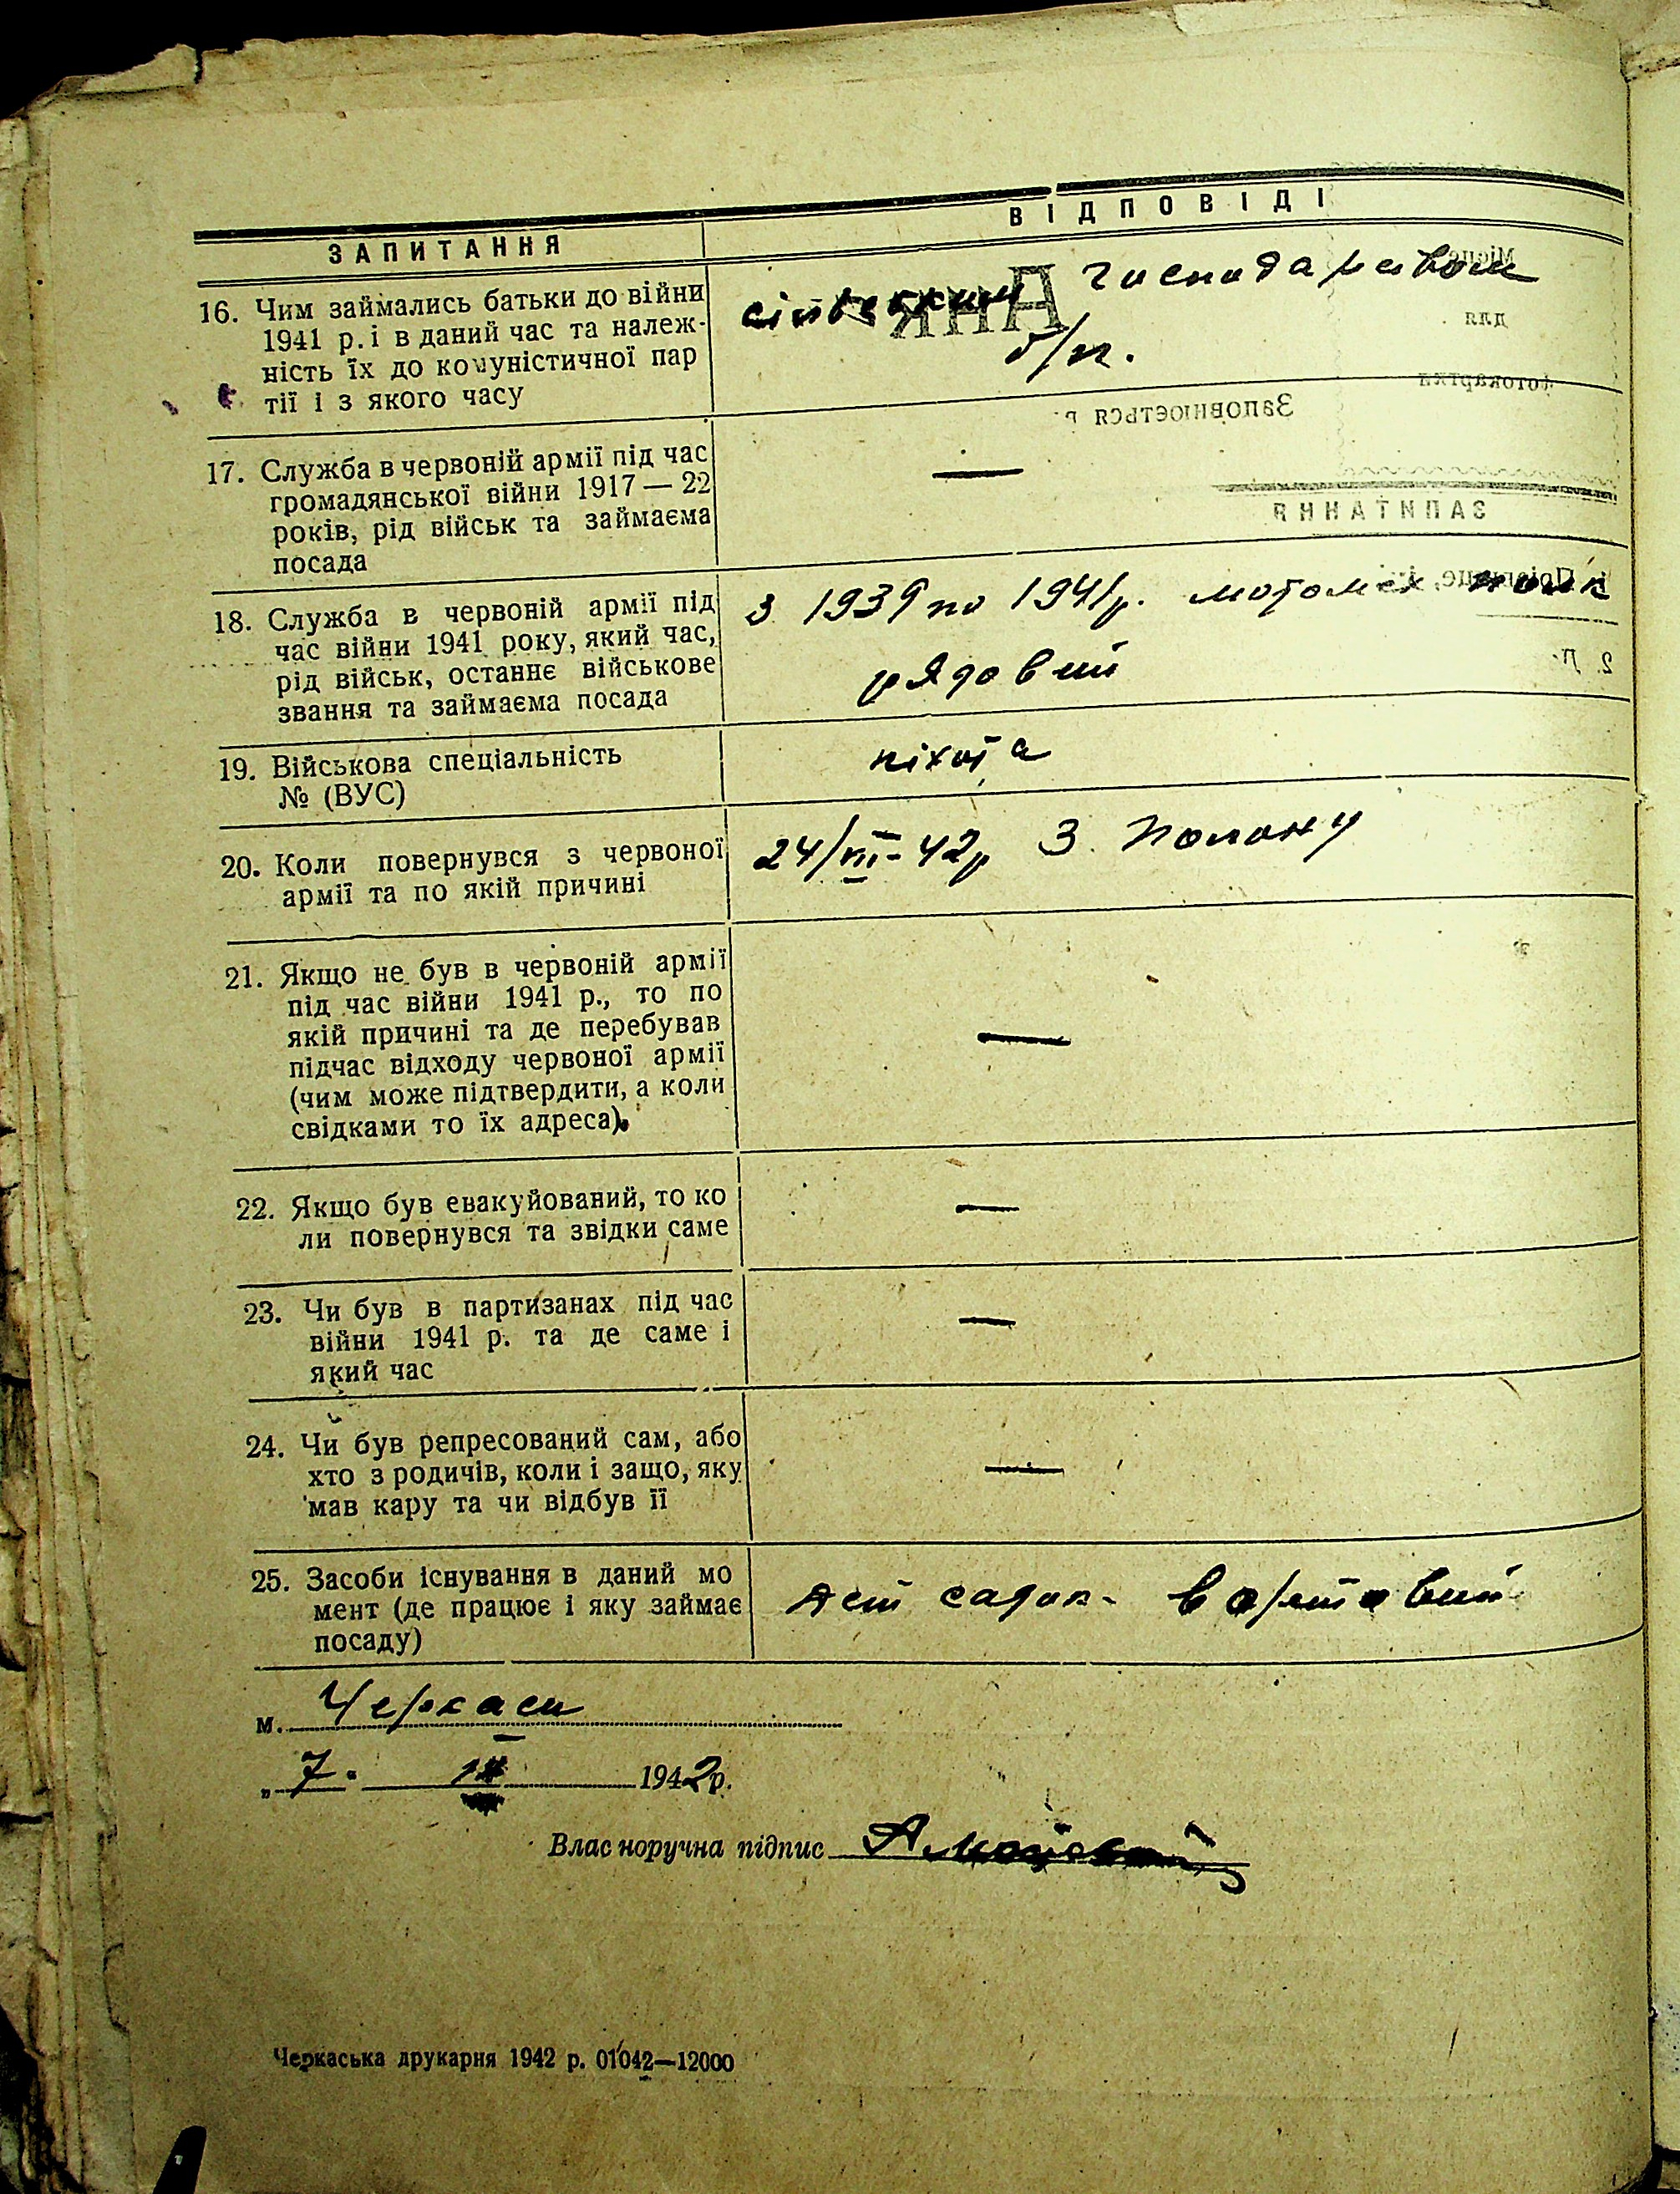 ЗАПИТАННЯ
ВІДПОВІДІ
16. Чим займались батьки до війни
1941 р. і в даний час та належ-
ність їх до комуністичної пар
тії і з якого часу
сільським господарством
б/п.
17. Служба в червоній армії під час
громадянської війни 1917 — 22
років, рід військ та займаєма
посада
—
18. Служба в червоній армії під
час війни 1941 року, який час,
рід військ, останнє військове
звання та займаєма посада
З 1939 по 1941 р. мотомех. полк
рядовий
19. Військова спеціальність
№ (ВУС)
піхота
20. Коли повернувся з червоної
армії та по якій причині
24/III-42р З. Полону
21. Якщо не був в червоній армії
під час війни 1941 р., то по
якій причині та де перебував
підчас відходу червоної армії
(чим може підтвердити, а коли
свідками то їх адреса).
—
22. Якщо був евакуйований, то ко
ли повернувся та звідки саме
—
23. Чи був в партизанах під час
війни 1941 р. та де саме і
який час
—
24. Чи був репресований сам, або
хто з родичів, коли і защо, яку
мав кару та чи відбув її
—
25. Засоби існування в даний мо
мент (де працює і яку займає
посаду)
садок- вартовий
м. Черкаси
„ 7 " 1942 р.
Влас норучна підпис
Черкаська друкарня 1942 р. 01042—12000